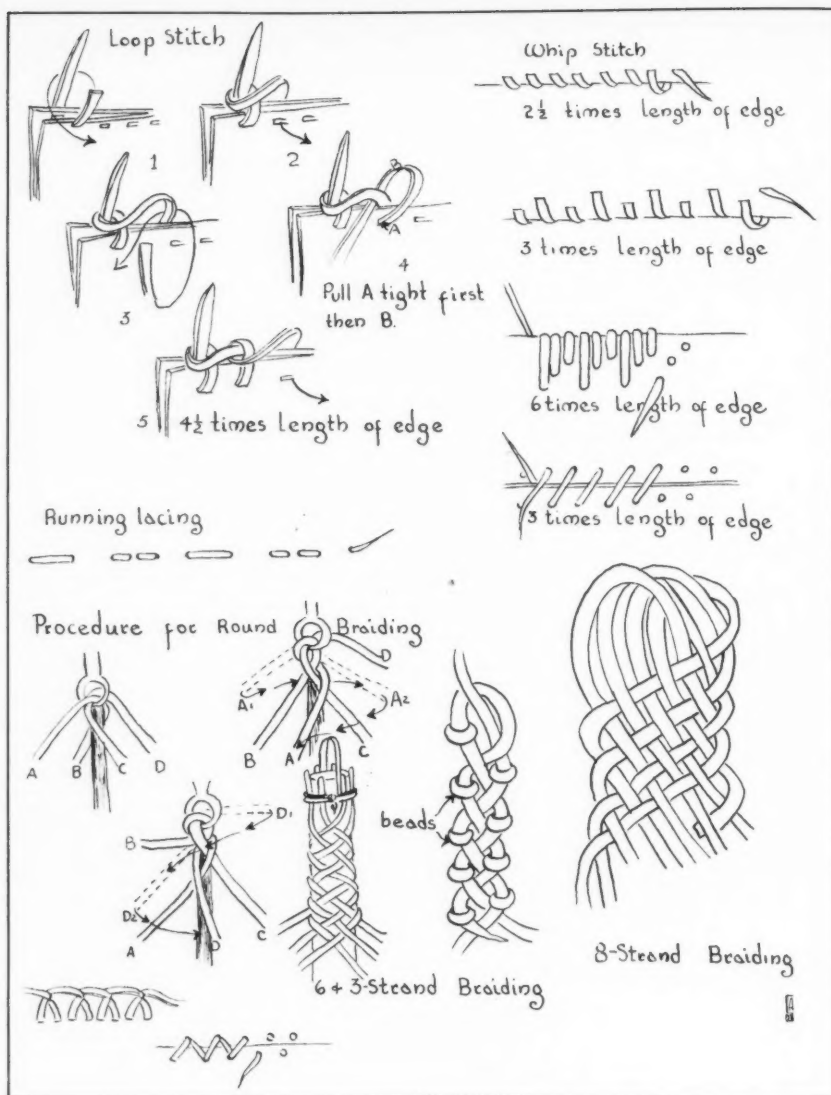 Loop Stitch
1
2
3
A
4
Pull A tight first
then B.
5 4½ times length of edge
Whip Stitch
2½ times length of edge
3 times length of edge
6 times length of edge
3 times length of edge
Running lacing
Procedure for Round Braiding
A B C D
D
A1
A2
B
A
C
B
D1
D2
A
D
C
beads
6 + 3-Strand Braiding
8-Strand Braiding